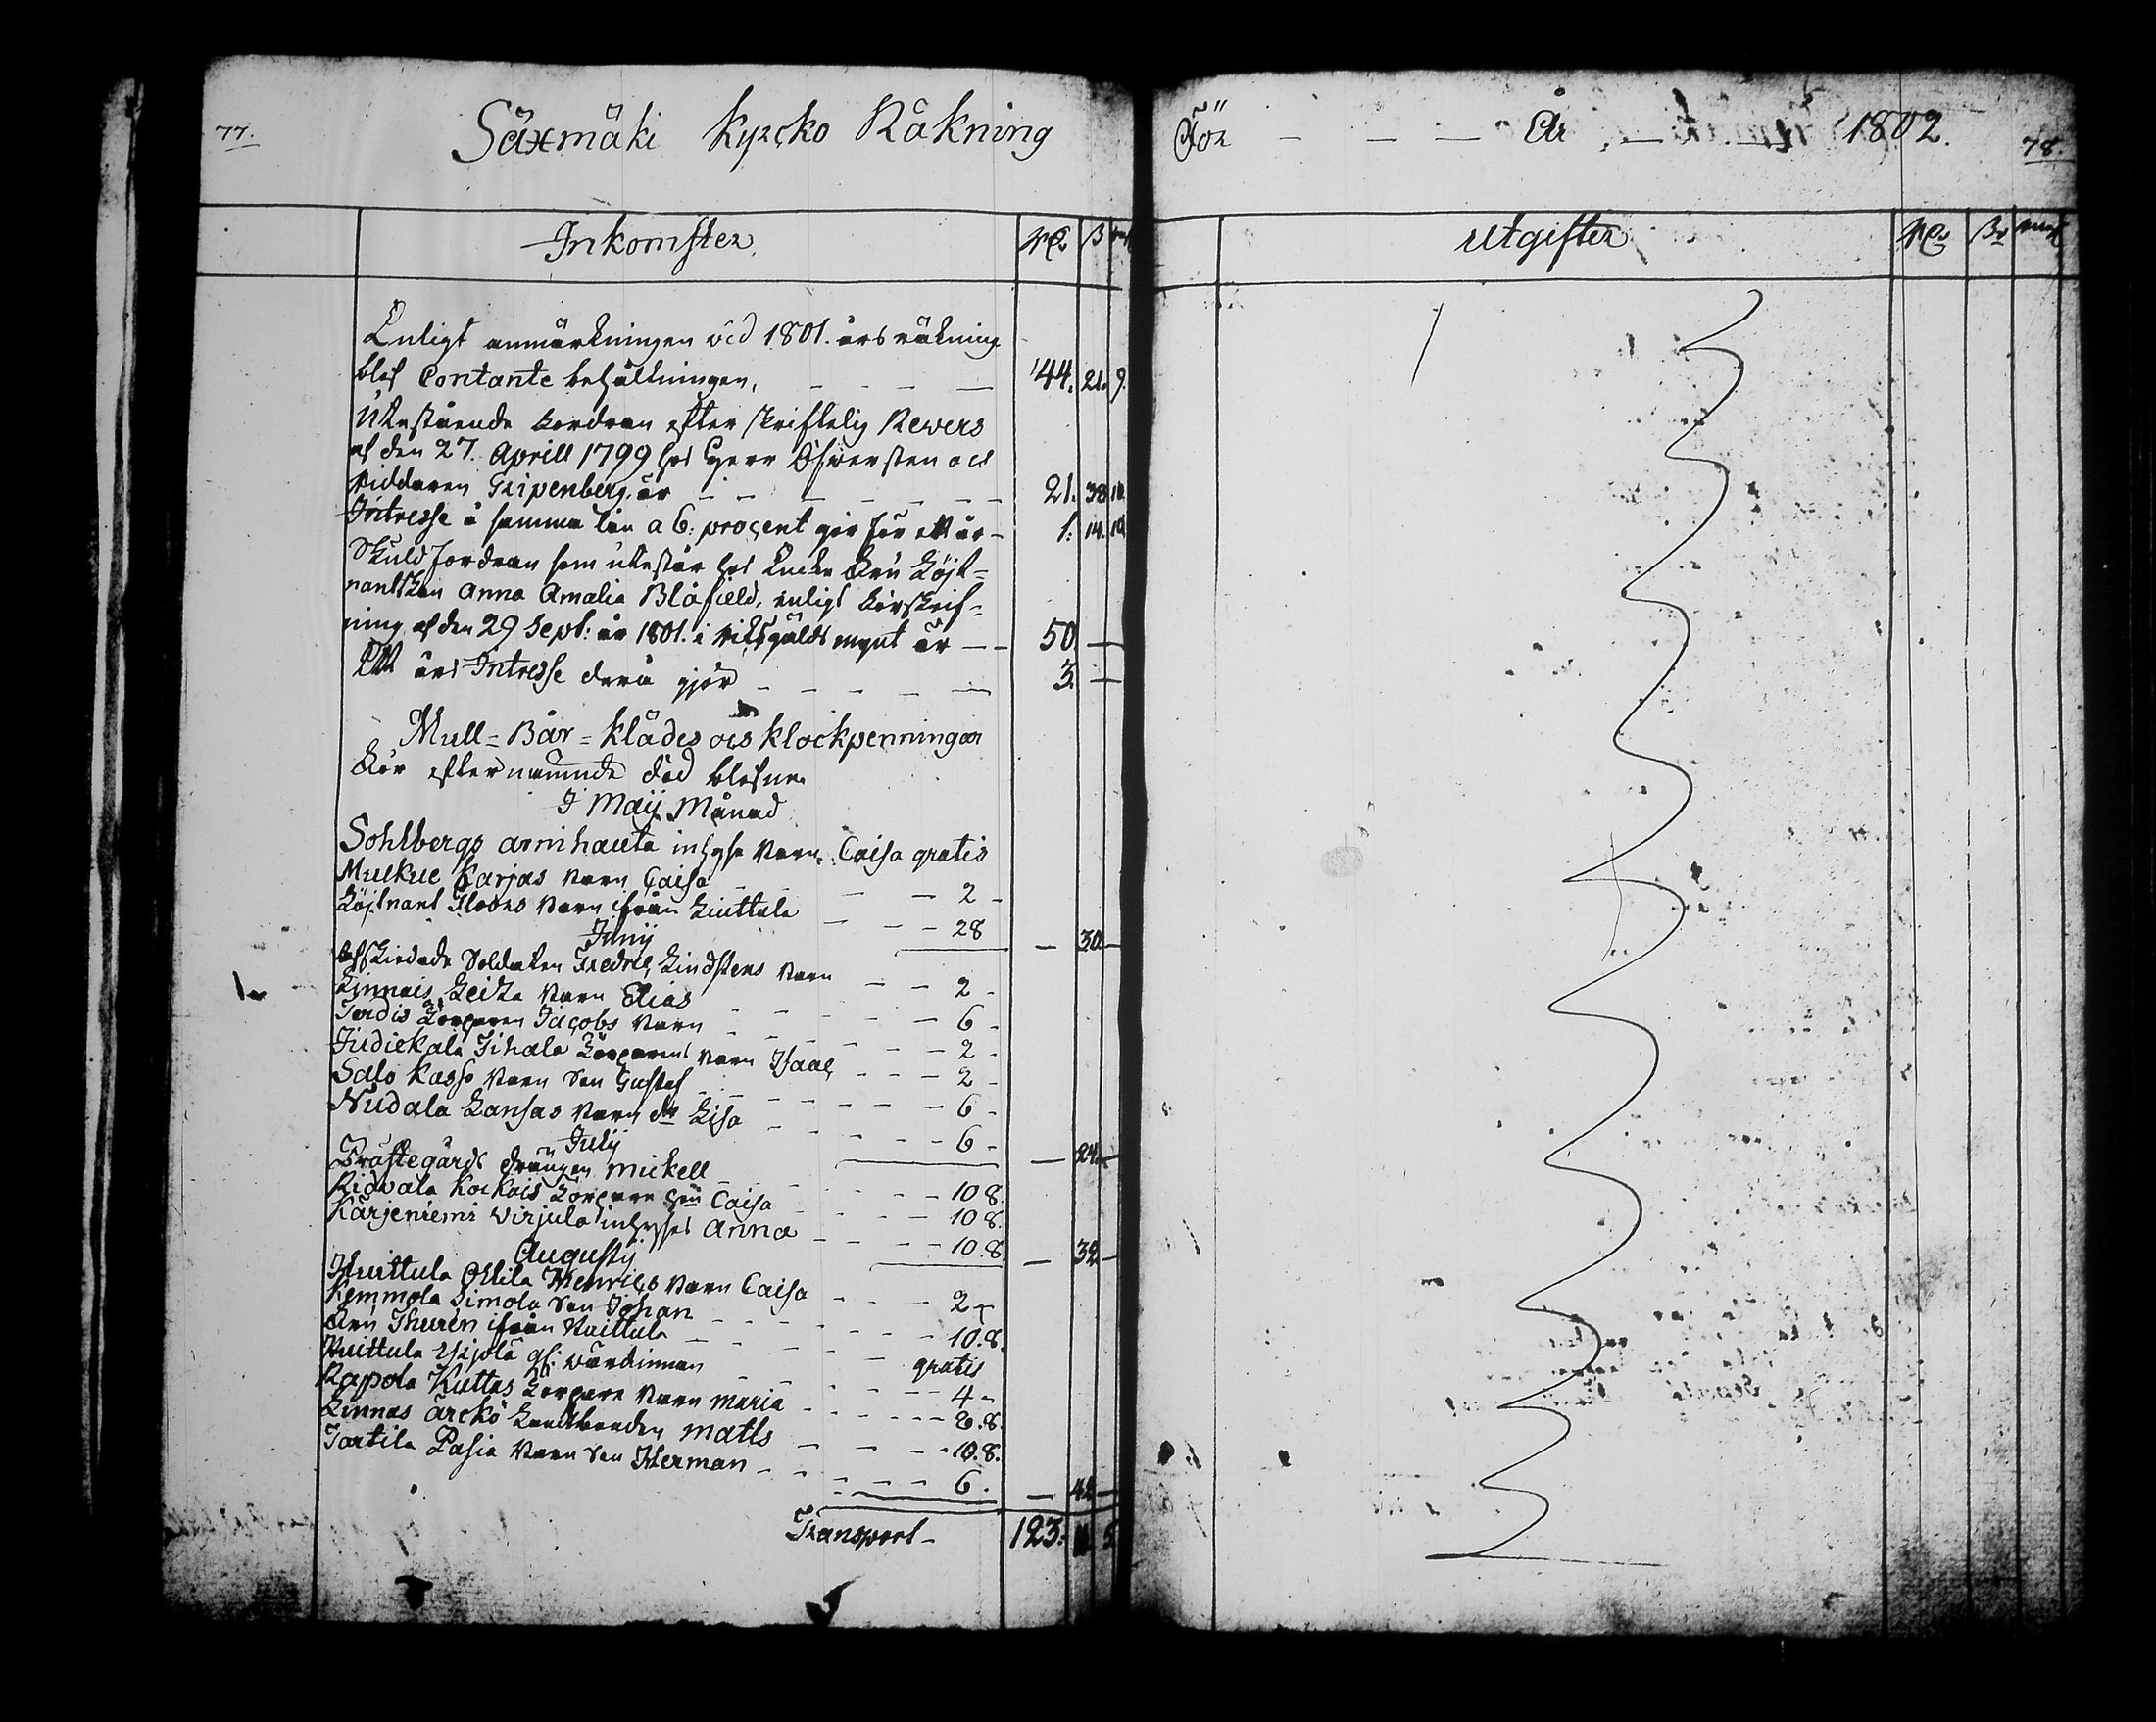 77.
Säxmäki Kyrcko Räkning
För — — — År — — 1802.
78.
Inkomster
Rd. ß
utgifter
Rd. ß
Enligt anmärkningen vid 1801. års räkning
blef Contante behållningen, — — — — 44. 21. 9.
Utestående fordran efter skriftelig Revers
af den 27. Aprill 1799 hos Herr Öfwersten och
Riddaren Gripenberg, är — — — — — 21. 38. 10.
Intresse å samma lån a 6: procent gör för ett år — 1: 14. 10
Skuld fordran som utestår hos Encke Fru Löjt=
nantskan Anna Amalia Blåfield, enligt förskrif=
ning af den 29 Sept: år 1801. i Riksgälds mynt är — — 50. —
Ett års Intresse derå gjör — — — — — 3. —
Mull = Bår = klädes och klockpenningar
för efternämnde död blefne.
I Maij Månad
Sohlbergs inhyse Barn, Caisa gratis
Karjas Barn Caisa — — — 2 —
Löjtnant Barn från Huittula — — — 28
— 30. —
Junij
Afskedade Soldaten Fredric Lindstens Barn — — 2 —
Barn Elias — — — — 6 —
Torparen Jacobs Barn — — — — 2 —
Torparens Barn Isaac — — — 2 —
Salo Kasso Barn Son Gustaf — — — — 6 —
Nudala Lansas Barn dr Lisa — — — — 6 —
— 24. —
Julij
Prästegårds drängen Mickell — — — — 10 8.
Ridvala Kockois Torpare hu Caisa — — — 10 8.
Kärjeniemi Virjula inhyses Anna — — — 10. 8
— 32 —
Augustij
Huittula Ollila Henrics Barn Caisa — — — 2 —
Kemmola Simola Son Johan — — — — 10. 8.
Fru Thurén ifrån Huittula — — — gratis
Huittula Yijolä gl: wärdinnan — — — 4 —
Rapola Kuttas Torpare Barn Maria — — — 8.
Linnas Landbonden Matts — — — 10. 8.
Tartila Pasia Barn Son Herman — — — — 6.
— 42 —
Transport — 123. 11. 5